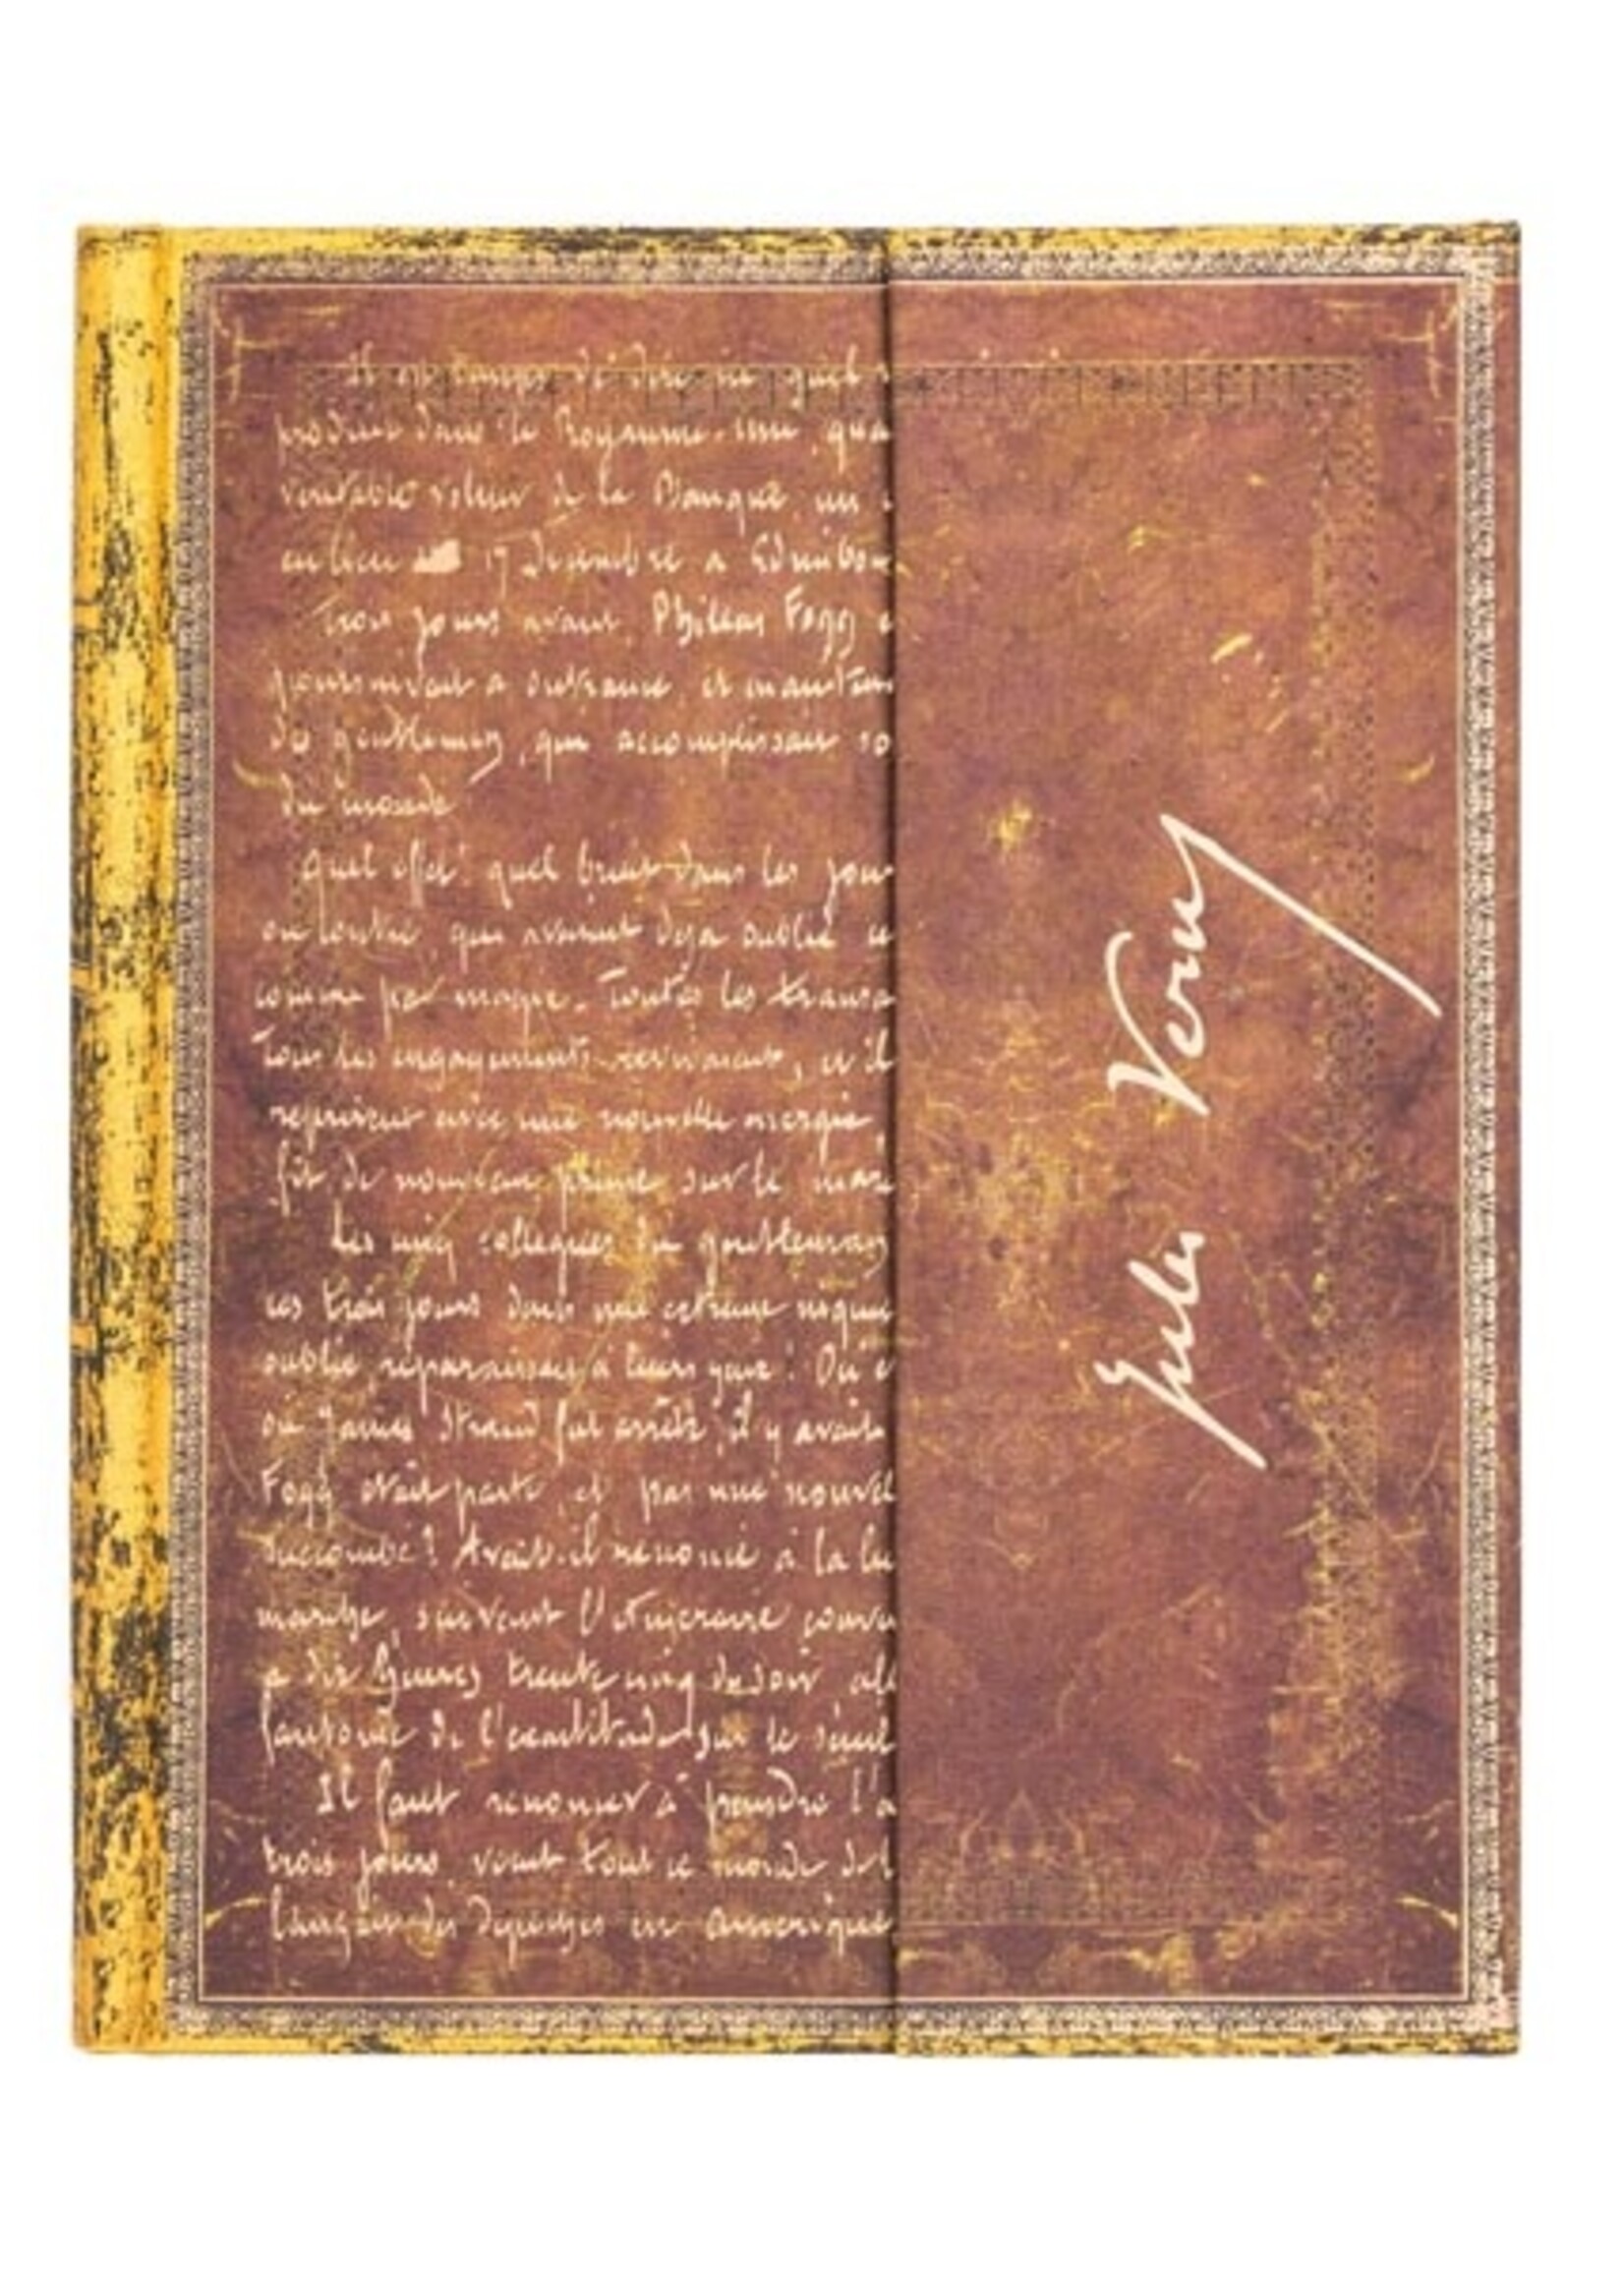 Il est temps de dire ici quel
produit dans le Royaume-Uni, qua
véritable voleur de la Banque, un
eu lieu 17 Décembre à Edimbou
Trois jours avant, Phileas Fogg
poursuivait à outrance, et mainten
gentleman, qui accomplissait so
du monde
Quel effet! quel bruit dans les jour
qui avaient déjà oublié ce
comme par magie. Toutes les transa
Tous les engagements revivaient, et il
reprirent avec une nouvelle énergie,
fit de nouveau prime sur le mar
Les cinq collègues du gentleman
ces trois jours dans une certaine inquié
oublié reparaissait à leurs yeux! Où é
où James Strand fut arrêté, il y avait
Fogg était parti, et pas une nouvel
succombé? Avait-il renoncé à la lu
marche, suivant l'itinéraire conve
à dix heures trente cinq du soir,
de l'exactitude, sur le seuil
Il faut renoncer à peindre l'a
trois jours, vécut tout ce monde de l
dépêches en Amérique
Jules Verne